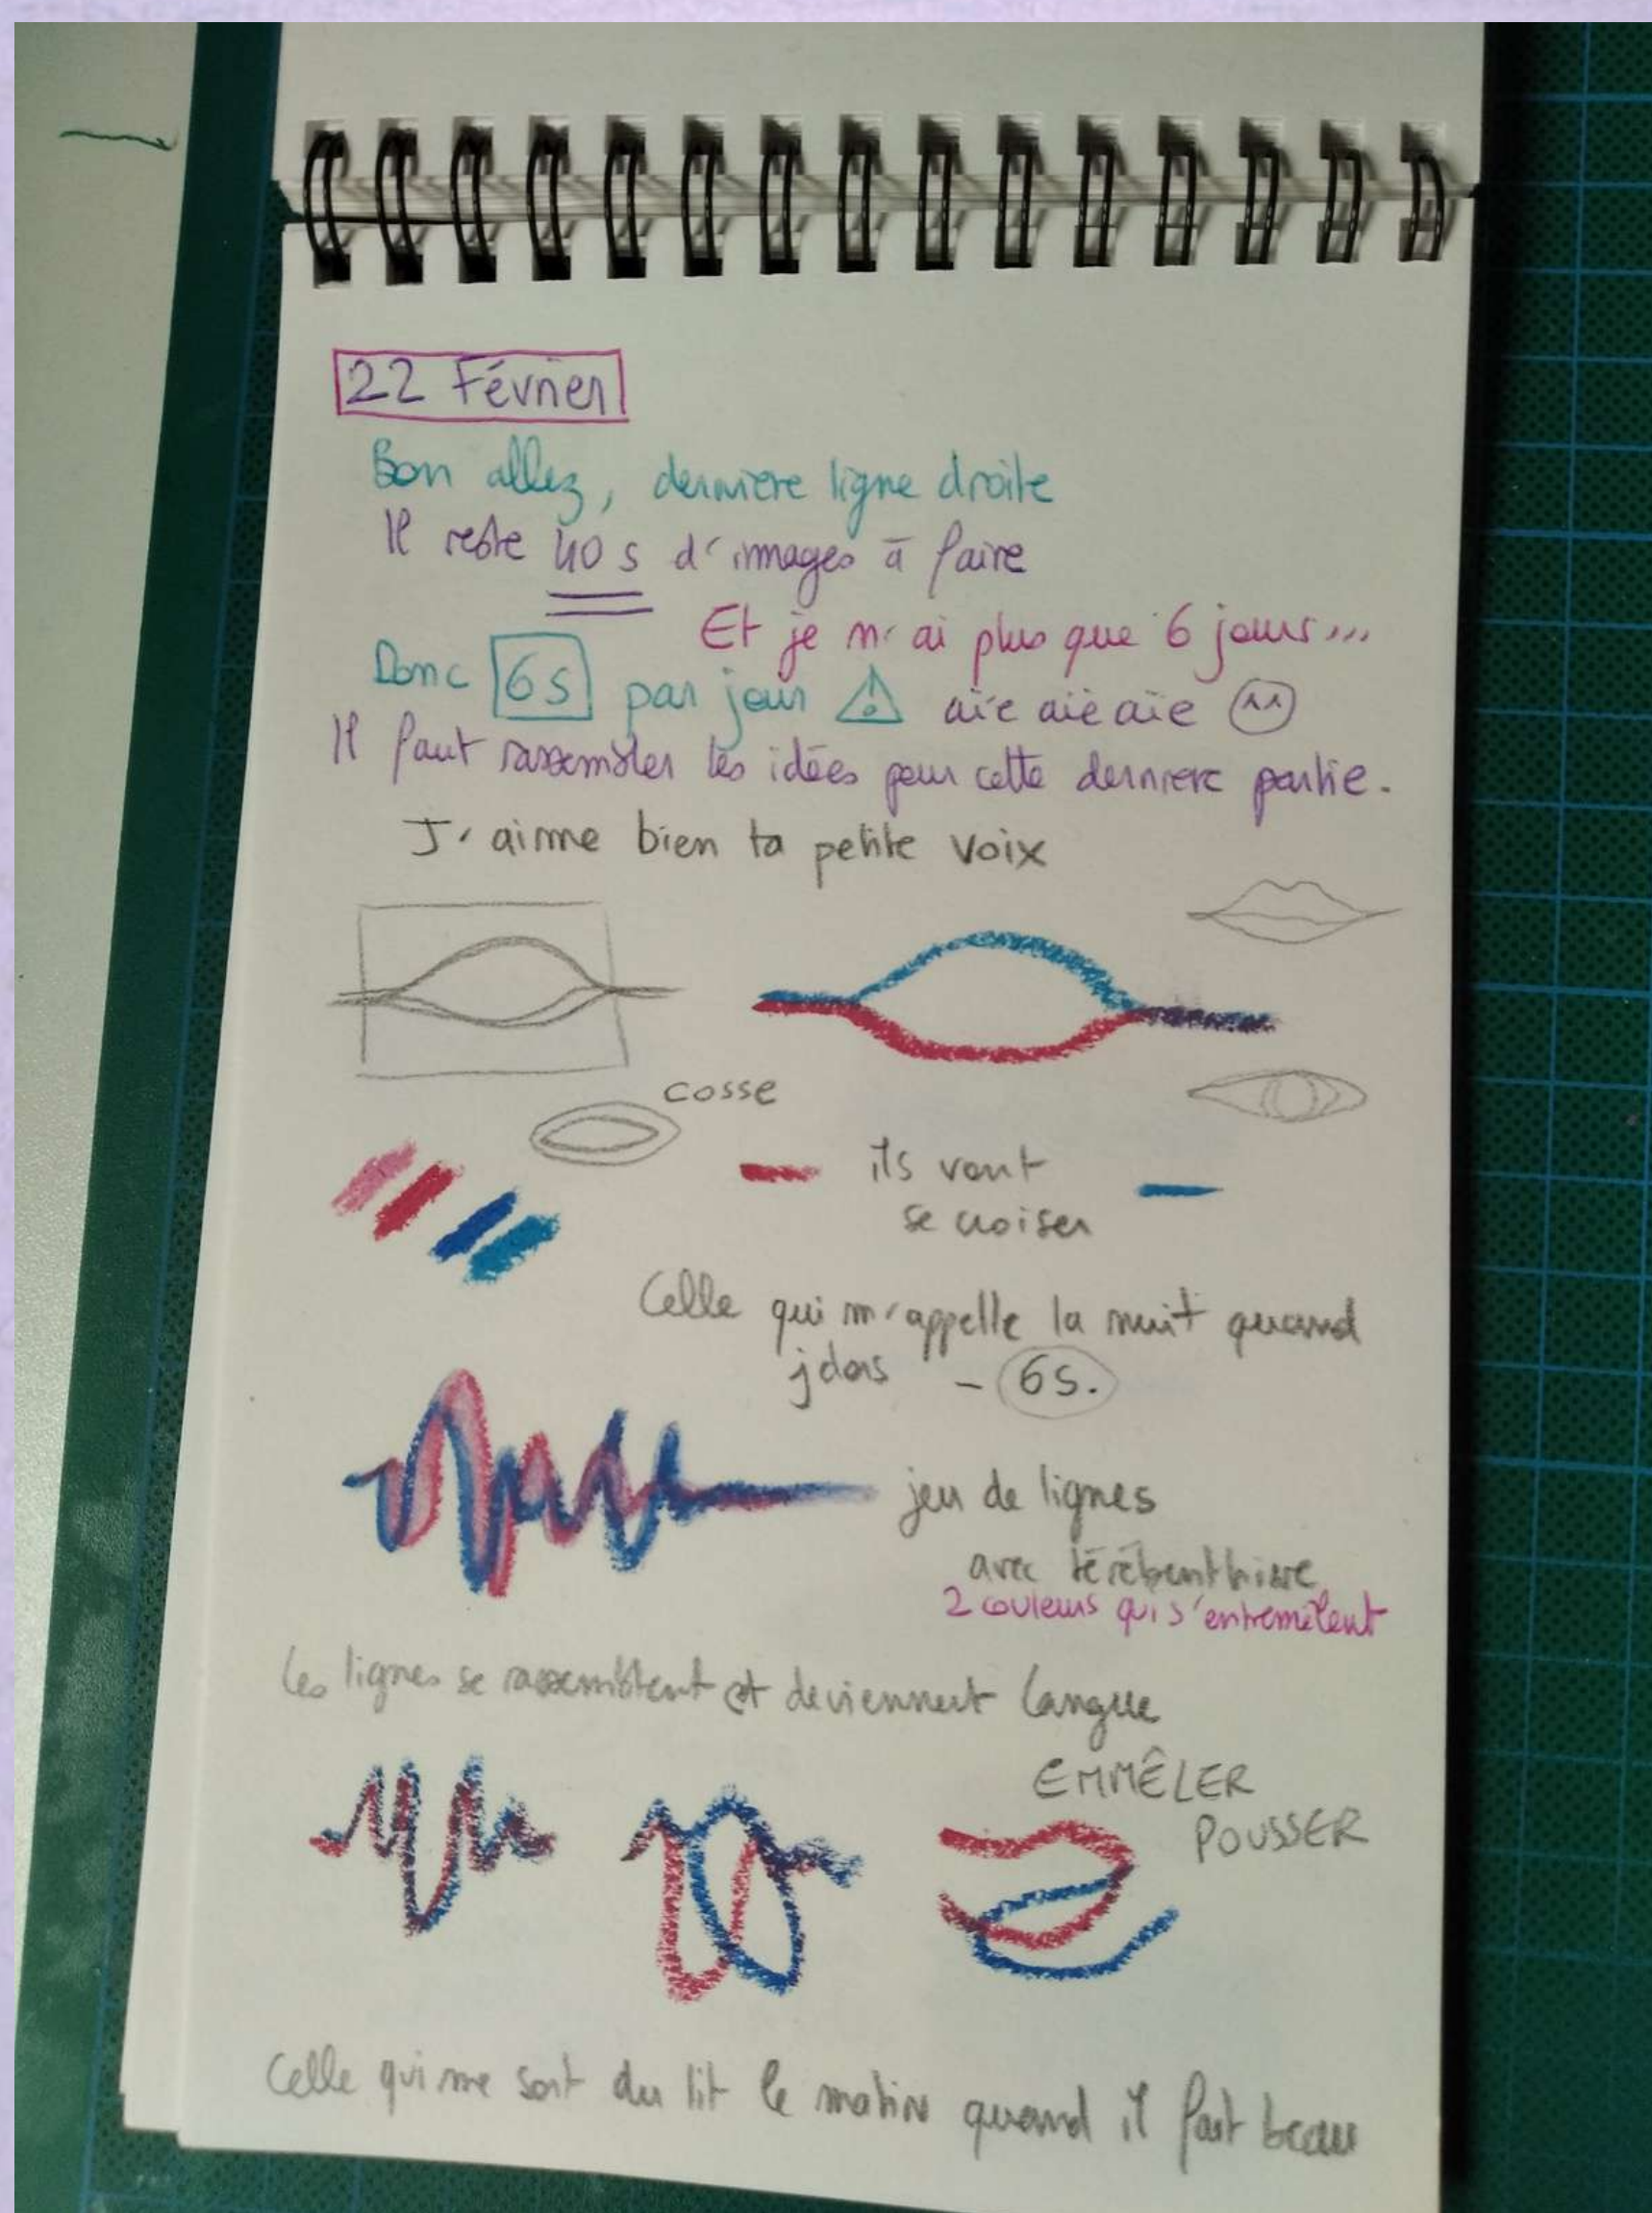 22 Février
Bon allez, dernière ligne droite
Il reste 40 s d'images à faire
Et je n'ai plus que 6 jours...
Donc 6s par jour ! aïe aïe aïe ^^
Il faut rassembler les idées pour cette dernière partie.
J'aime bien ta petite voix
cosse
ils vont
se croiser
Celle qui m'appelle la nuit quand
jdors - 6s.
jeu de lignes
avec térébenthine
2 couleurs qui s'entremêlent
les lignes se rassemblent et deviennent langue
EMMÊLER
POUSSER
Celle qui me sort du lit le matin quand il fait beau